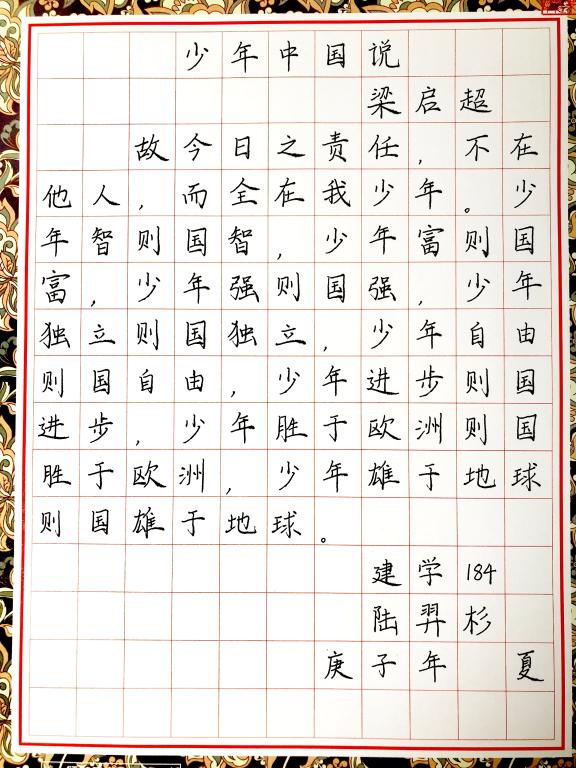 少年中国说
梁启超
故今日之责任,不在
他人,而全在我少年。少
年智则国智,少年富则国
富,少年强则国强,少年
独立则国独立,少年自由
则国自由,少年进步则国
进步,少年胜于欧洲则国
胜于欧洲,少年雄于地球
则国雄于地球。
建学184
陆羿杉
庚子年 夏